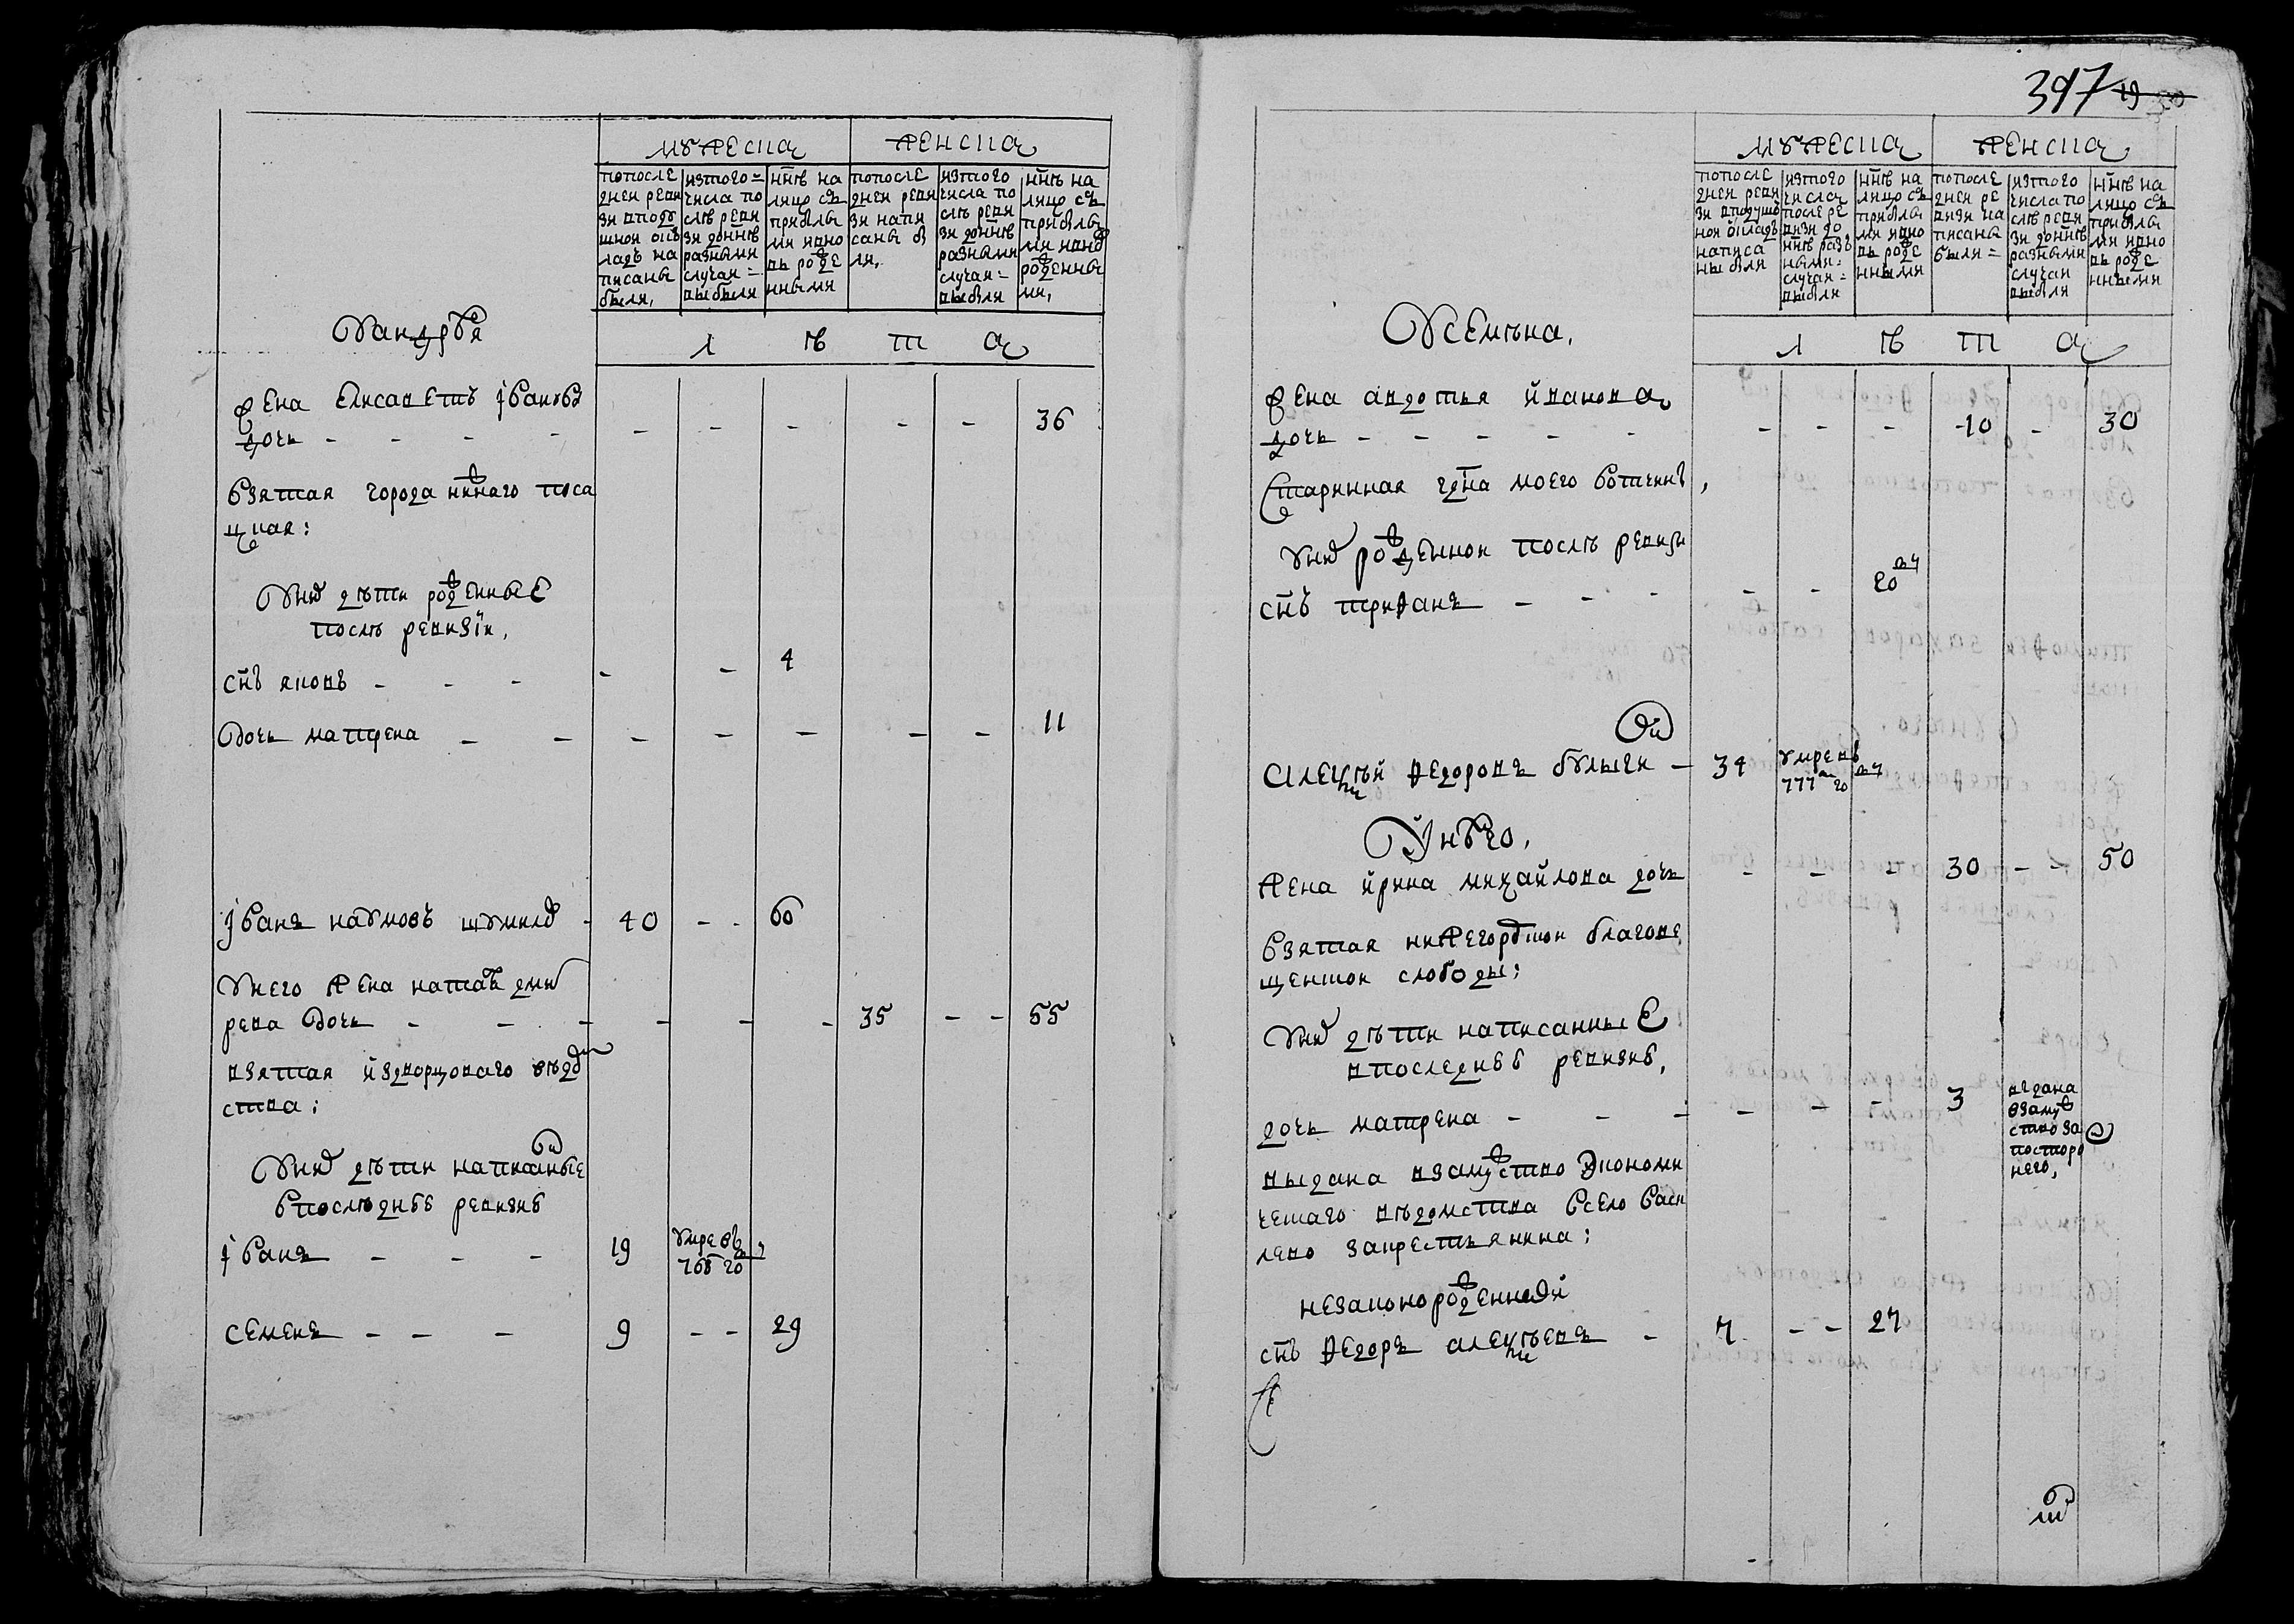 мужеска
женска
попосле
дней реви
зи вподу
шной окъ
ладъ на
писаны
были,
изтого
числа по
слѣ реви
зи доннѣ
разными
случаи
выбыли
ннѣ на
лицо съ
прибылы
ми ивно
вь рожде
нными
попосле
дней реви
зи напи
саны бы
ли,
изтого
числа по
слѣ реви
зи доннѣ
разными
случаи
выбыли
ннѣ на
лицо съ
прибылы
ми ивно
рожденны
ми,
л ѣ т а
Уандрѣя
жена елисаветъ іванова
дочь - - - - - - - - - 36
взятая города нижнаго поса
цкая:
Унихъ дѣти рожденные
послѣ ревизіи,
снъ яковъ - - - - - 4
дочь матрена - - - - - - - 11
іванъ наумовъ шумило - 40 - - 60
Унего жена наталья дми
рева дочь - - - - - - 35 - - 55
взятая издворцоваго вѣдом
ства:
Унихъ дѣти написанные
впослѣднѣе ревизие
іванъ - - - 19 умре въ
766 го
семенъ - - - 9 - - 29
397
19
мужеска
женска
попосле
дней реви
зи вподушъ
ной окладъ
написа
ны были
изтого
числа
после ре
визи до
ннѣ разъ
ными
случаи
выбыли
ннѣ на
лицо съ
прибылы
ми ивно
вь рожде
нными
попосле
дней ре
визи на
писаны
были
изтого
числа по
слѣ реви
зи доннѣ
разными
случаи
выбыли
ннѣ на
лицо съ
прибылы
ми ивно
вь рожде
нными
л ѣ т а
Усемѣна,
жена авдотья иванова
дочь - - - - - - - - 10 - 30
старинная

моего вотчинѣ,
Унихъ рожденной послѣ ревизи
снъ трифанъ - - - - - 20
Алексѣй федоровъ булыги - 34 умре въ
777 го
Унѣго,
жена ирина михайлова дочь - - - 30 - - 50
взятая нижегородцкой благове
щенской слободы;
Унихъ дѣти написанные
впоследнѣе ревизие,
дочь матрена - - - - - - 3 выдана
взамуж
ство за
посторо
него,
выдана взамужство Экономи
ческаго вѣдомства всело васи
лево закрестьянина:
незаконорожденный
снъ федоръ алексѣевъ - 7 - - 27